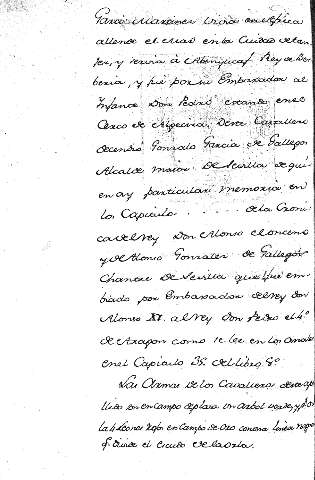 Garci Martinez vivia en Africa
allende el mar en la Ciudad de tan
jer, y servia á Abenjucaf Rey de Ber
beria, y fué por su Embaxador al
Infante Don Pedro estando en el
Cerco de Algecira. Deste Cavallero
deciendió Gonzalo Garcia de Gallegos
Alcalde maior de Sevilla de qui
en ay particular memoria en
los Capitulo . . . . . . de la Croni
ca del rey Don Alonso el onceno
y de Alonso Gonzalez de Gallegos
Chanciller de Sevilla que fué em
biado por Embaxador del rey Don
Alonso XI. al Rey Don Pedro el 4º
de Aragon como se lee en los Anales
en el Capitulo 35. del libro 8º
Las Armas de los Cavalleros deste ape
llido son en campo de plata un arbol verde, y
la 4 leones rojos en campo de oro con una linea negra
q. divide el escudo de la orla.